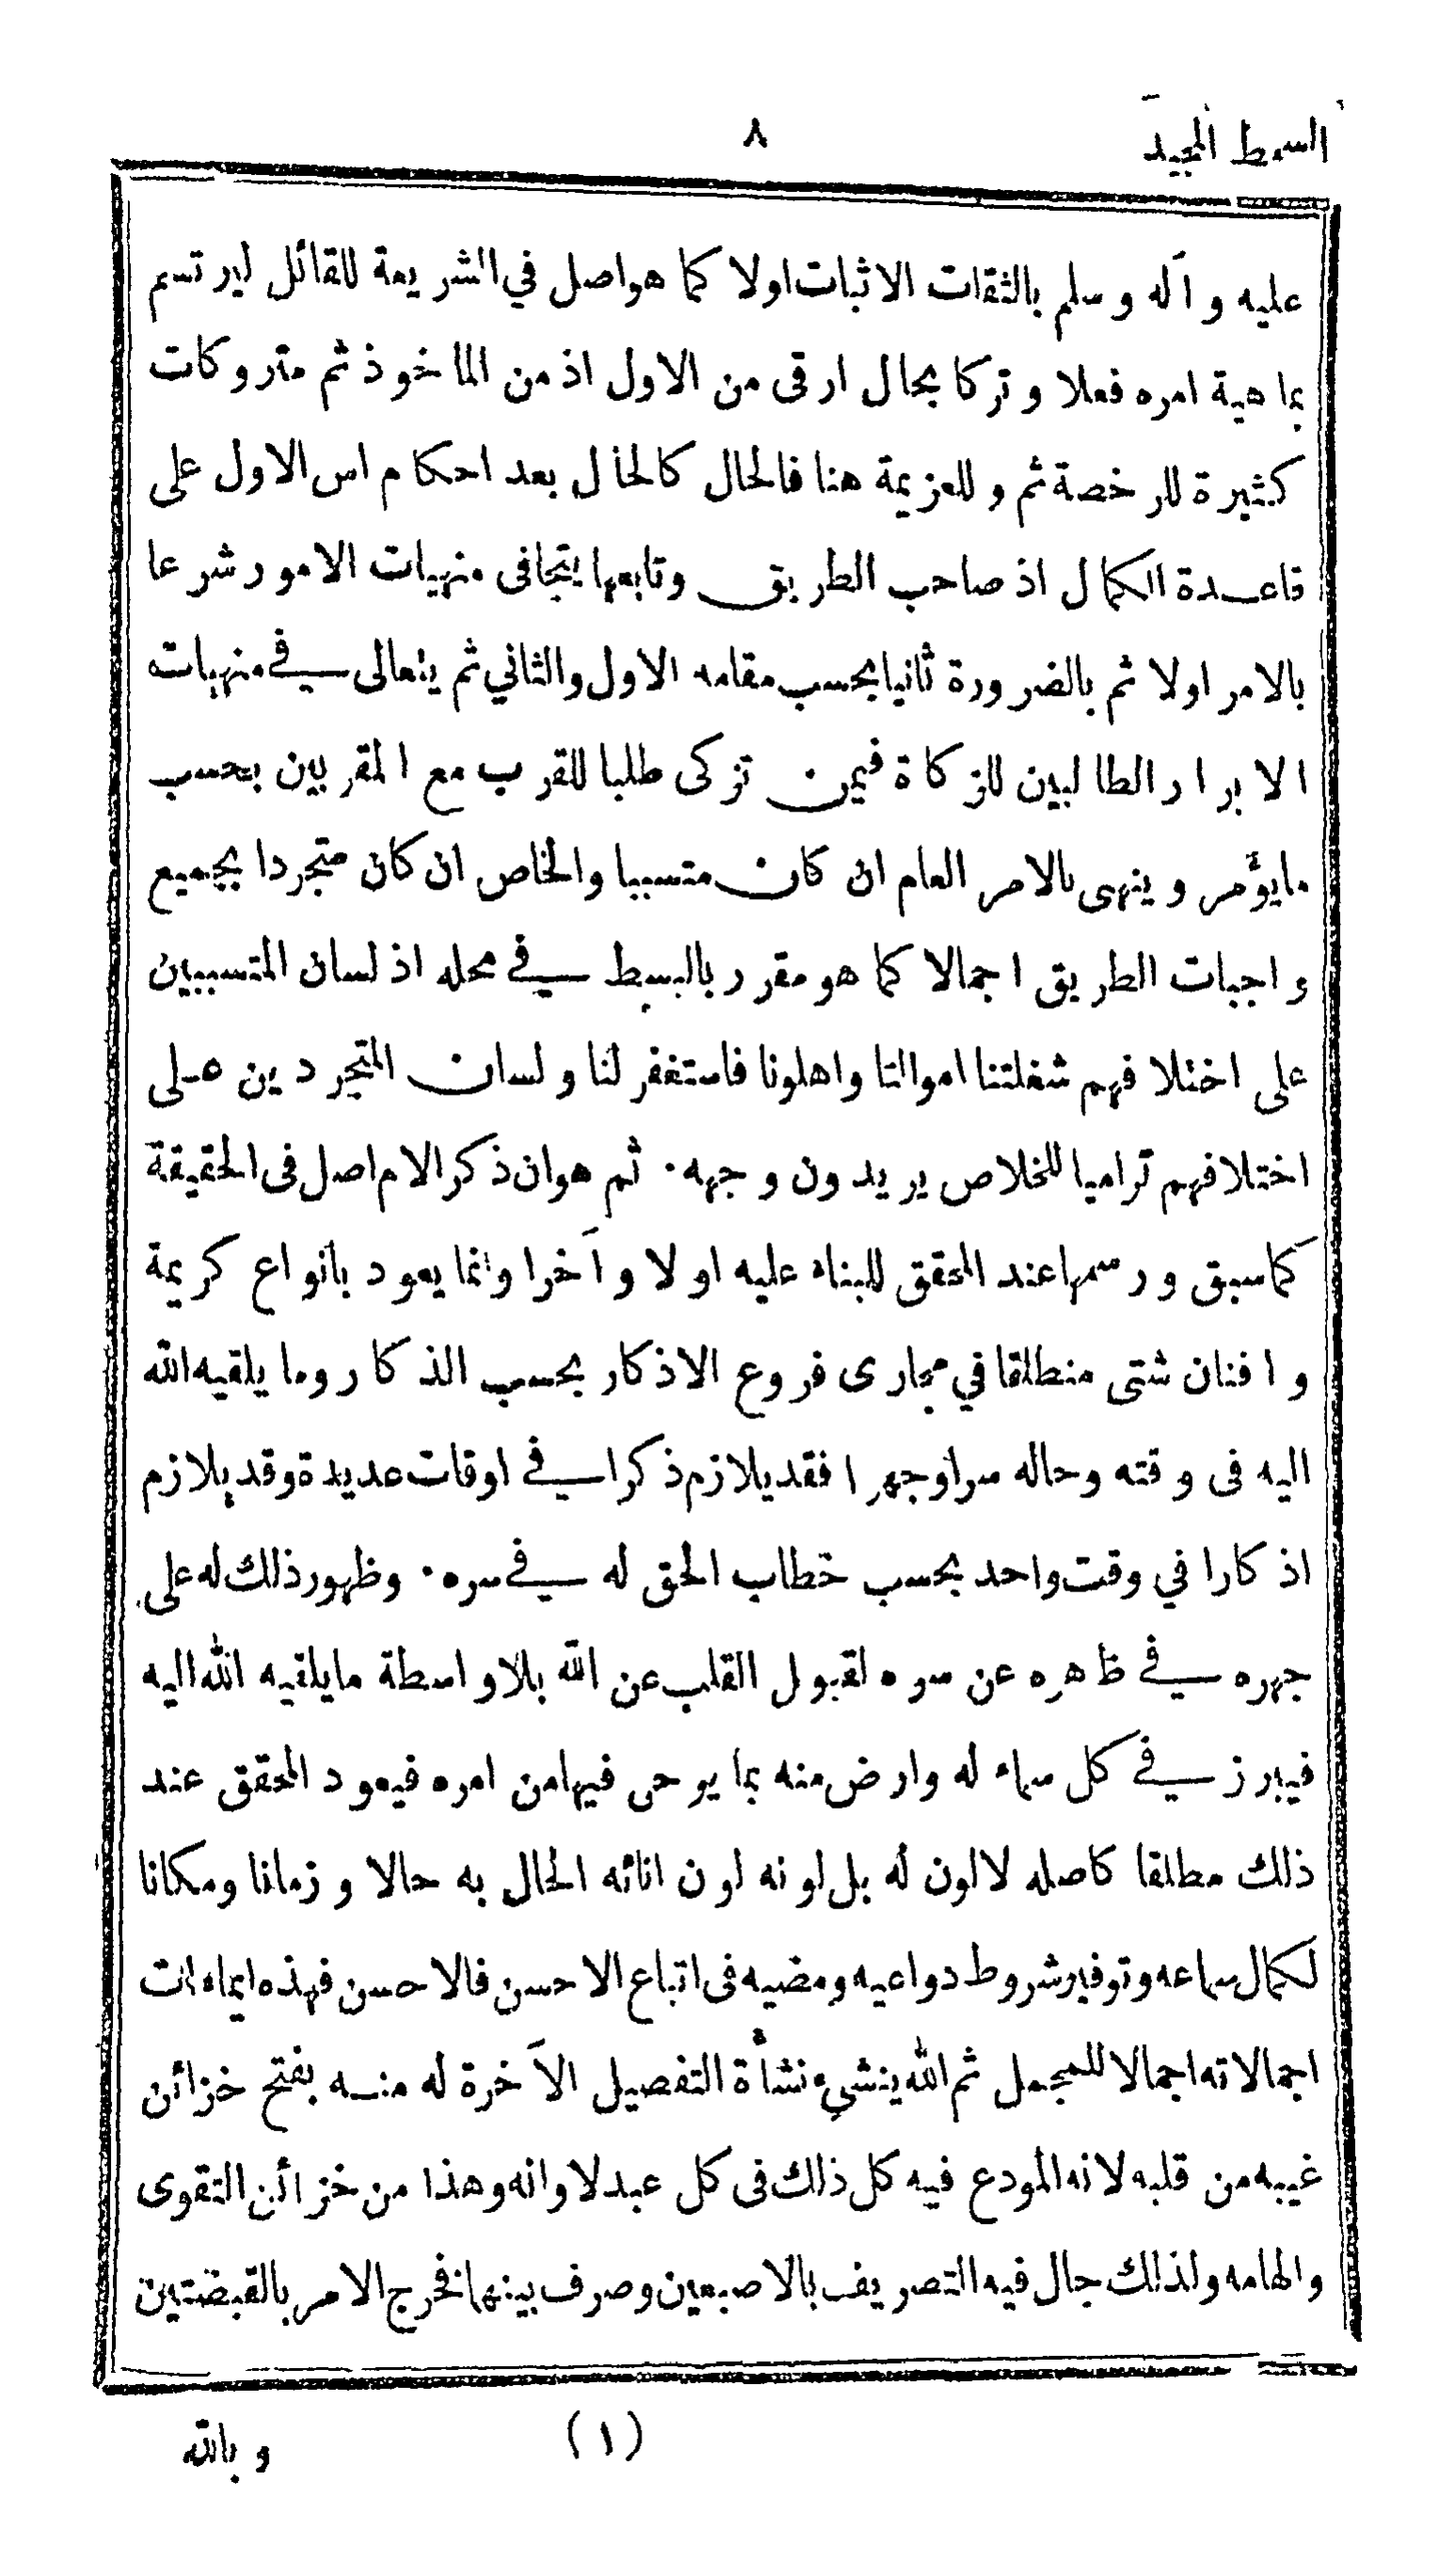 السمط المجيد
٨
عليه وآله وسلم بالثقات الاثبات اولا كما هو اصل في الشريعة للقائل ليرتسم
بماهية امره فعلا وتركا بحال ارقى من الاول اذ من المأخوذ ثم متروكات
كثيرة للرخصة ثم وللعزيمة هنا فالحال كالحال بعد احكام اس الاول على
قاعدة الكمال اذ صاحب الطريق وتابعها يتجافى منهيات الامور شرعا
بالامر اولا ثم بالضرورة ثانيا بحسب مقامه الاول والثاني ثم يتعالى في منهيات
الابرار الطالبين للزكاة فيمن تزكى طلبا للقرب مع المقربين بحسب
مايؤمر وينهى بالامر العام ان كان متسببا والخاص ان كان متجردا بجميع
واجبات الطريق اجمالا كما هو مقرر بالبسط في محله اذ لسان المتسببين
على اختلافهم شغلتنا اموالنا واهلونا فاستغفر لنا ولسان المتجردين على
اختلافهم تراميا للخلاص يريدون وجهه · ثم هو ان ذكر الام اصل فى الحقيقة
كما سبق ورسمها عند المحقق للبناء عليه اولا وآخرا وانما يعود بانواع كريمة
وافنان شتى منطلقا في مجارى فروع الاذكار بحسب الذكار وما يلقيه الله
اليه فى وقته وحاله سرا وجهرا فقد يلازم ذكرا في اوقات عديدة وقد يلازم
اذكارا في وقت واحد بحسب خطاب الحق له في سره · وظهور ذلك له على
جهره في ظاهره عن سره لقبول القلب عن الله بلا واسطة مايلقيه الله اليه
فيبرز في كل سماء له وارض منه بما يوحى فيها من امره فيعود المحقق عند
ذلك مطلقا كاصله لالون له بل لونه لون انائه الحال به حالا وزمانا ومكانا
لكمال سماعه وتوفير شروط دواعيه ومضيه فى اتباع الاحسن فالاحسن فهذه ايماءات
اجمالاته اجمالا للمجمل ثم الله ينشىء نشأة التفصيل الآخرة له منه بفتح خزائن
غيبه من قلبه لانه المودع فيه كل ذلك فى كل عبد لاوانه وهذا من خزائن التقوى
والهامه ولذلك جال فيه التصريف بالاصبعين وصرف بينهما فخرج الامر بالقبضتين
(١)
وبالله